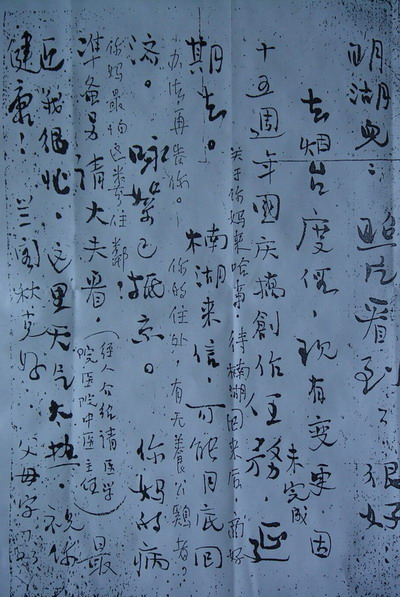 明湖兒：照片看到了很好：
去烟台度假，现有变更因
未完成
十五週年國庆搞創作任務，延
关于你妈来哈事，待楠湖回来后，商好
期去。楠湖来信，可能月底回
办法再告你。你的住处，有无养公鷄者？
济。咏 已抵京。你妈的病
你妈最怕这 住鄰！
準备另请大夫看。（经人介绍请医学
院医院中医主任）最
近我很忙。这里天气大热。祝你
健康！兰 秋克好 父母字